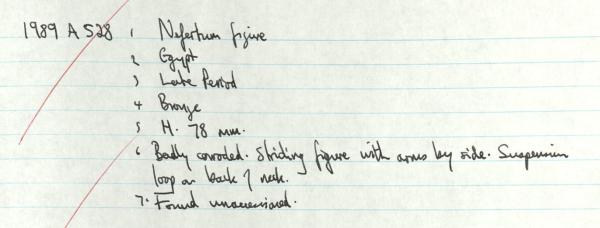 1989 A 528 1 Nefertum figure
2 Egypt
3 Late Period
4 Bronze
5 H. 78 mm.
6 Badly corroded. Striding figure with arms by side. Suspension
loop on back of neck.
7. Found unaccessioned.